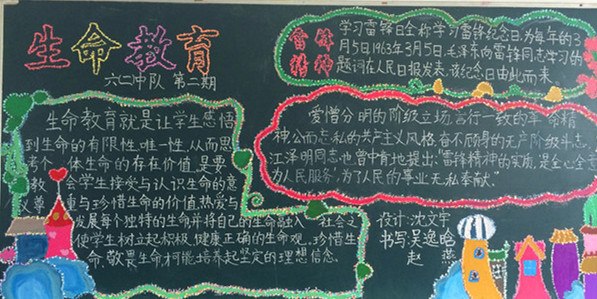 生命教育
六(二)中队 第二期
生命教育就是让学生感悟
到生命的有限性、唯一性,从而思
考个体生命的存在价值,是要
教会学生接受与认识生命的意
义尊重与珍惜生命的价值,热爱与
发展每个独特的生命并将自己的生命融入社会之
使学生树立起积极、健康、正确的生命观、珍惜生
命、敬畏生命才能培养起坚定的理想信念。
雷锋
精神
学习雷锋日全称学习雷锋纪念日,为每年的3
月5日1963年3月5日,毛泽东向雷锋同志学习的
题词在人民日报发表,该纪念日由此而来
爱憎分明的阶级立场,言行一致的革命精
神,公而忘私的共产主义风格,奋不顾身的无产阶级斗志,
江泽明同志也曾中肯地提出:"雷锋精神的实质,是全心全意
为人民服务",为了人民的事业无私奉献."
设计:沈文宇
书写:吴逸晗
赵燕